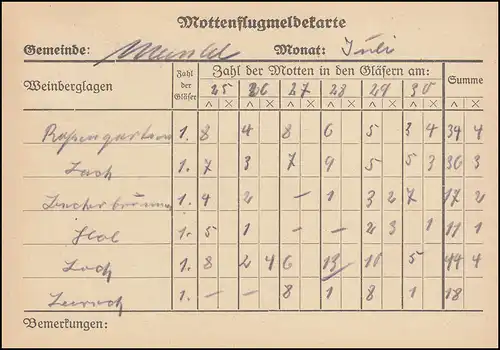 Mottenflugmeldekarte
Gemeinde: Monat: Juli
Weinberglagen Zahl der Gläser Zahl der Motten in den Gläsern am: Summe
25 26 27 28 29 30
^ × ^ × ^ × ^ × ^ × ^ × ^ ×
Rosengarten 1. 8 4 8 6 5 3 4 34 4
1. 7 3 7 9 5 5 3 36 3
1. 4 2 – 1 3 2 7 17 2
1. 5 1 – – 2 3 1 11 1
Loch 1. 8 2 4 6 13 10 5 44 4
1. – – 8 1 8 1 18
Bemerkungen: